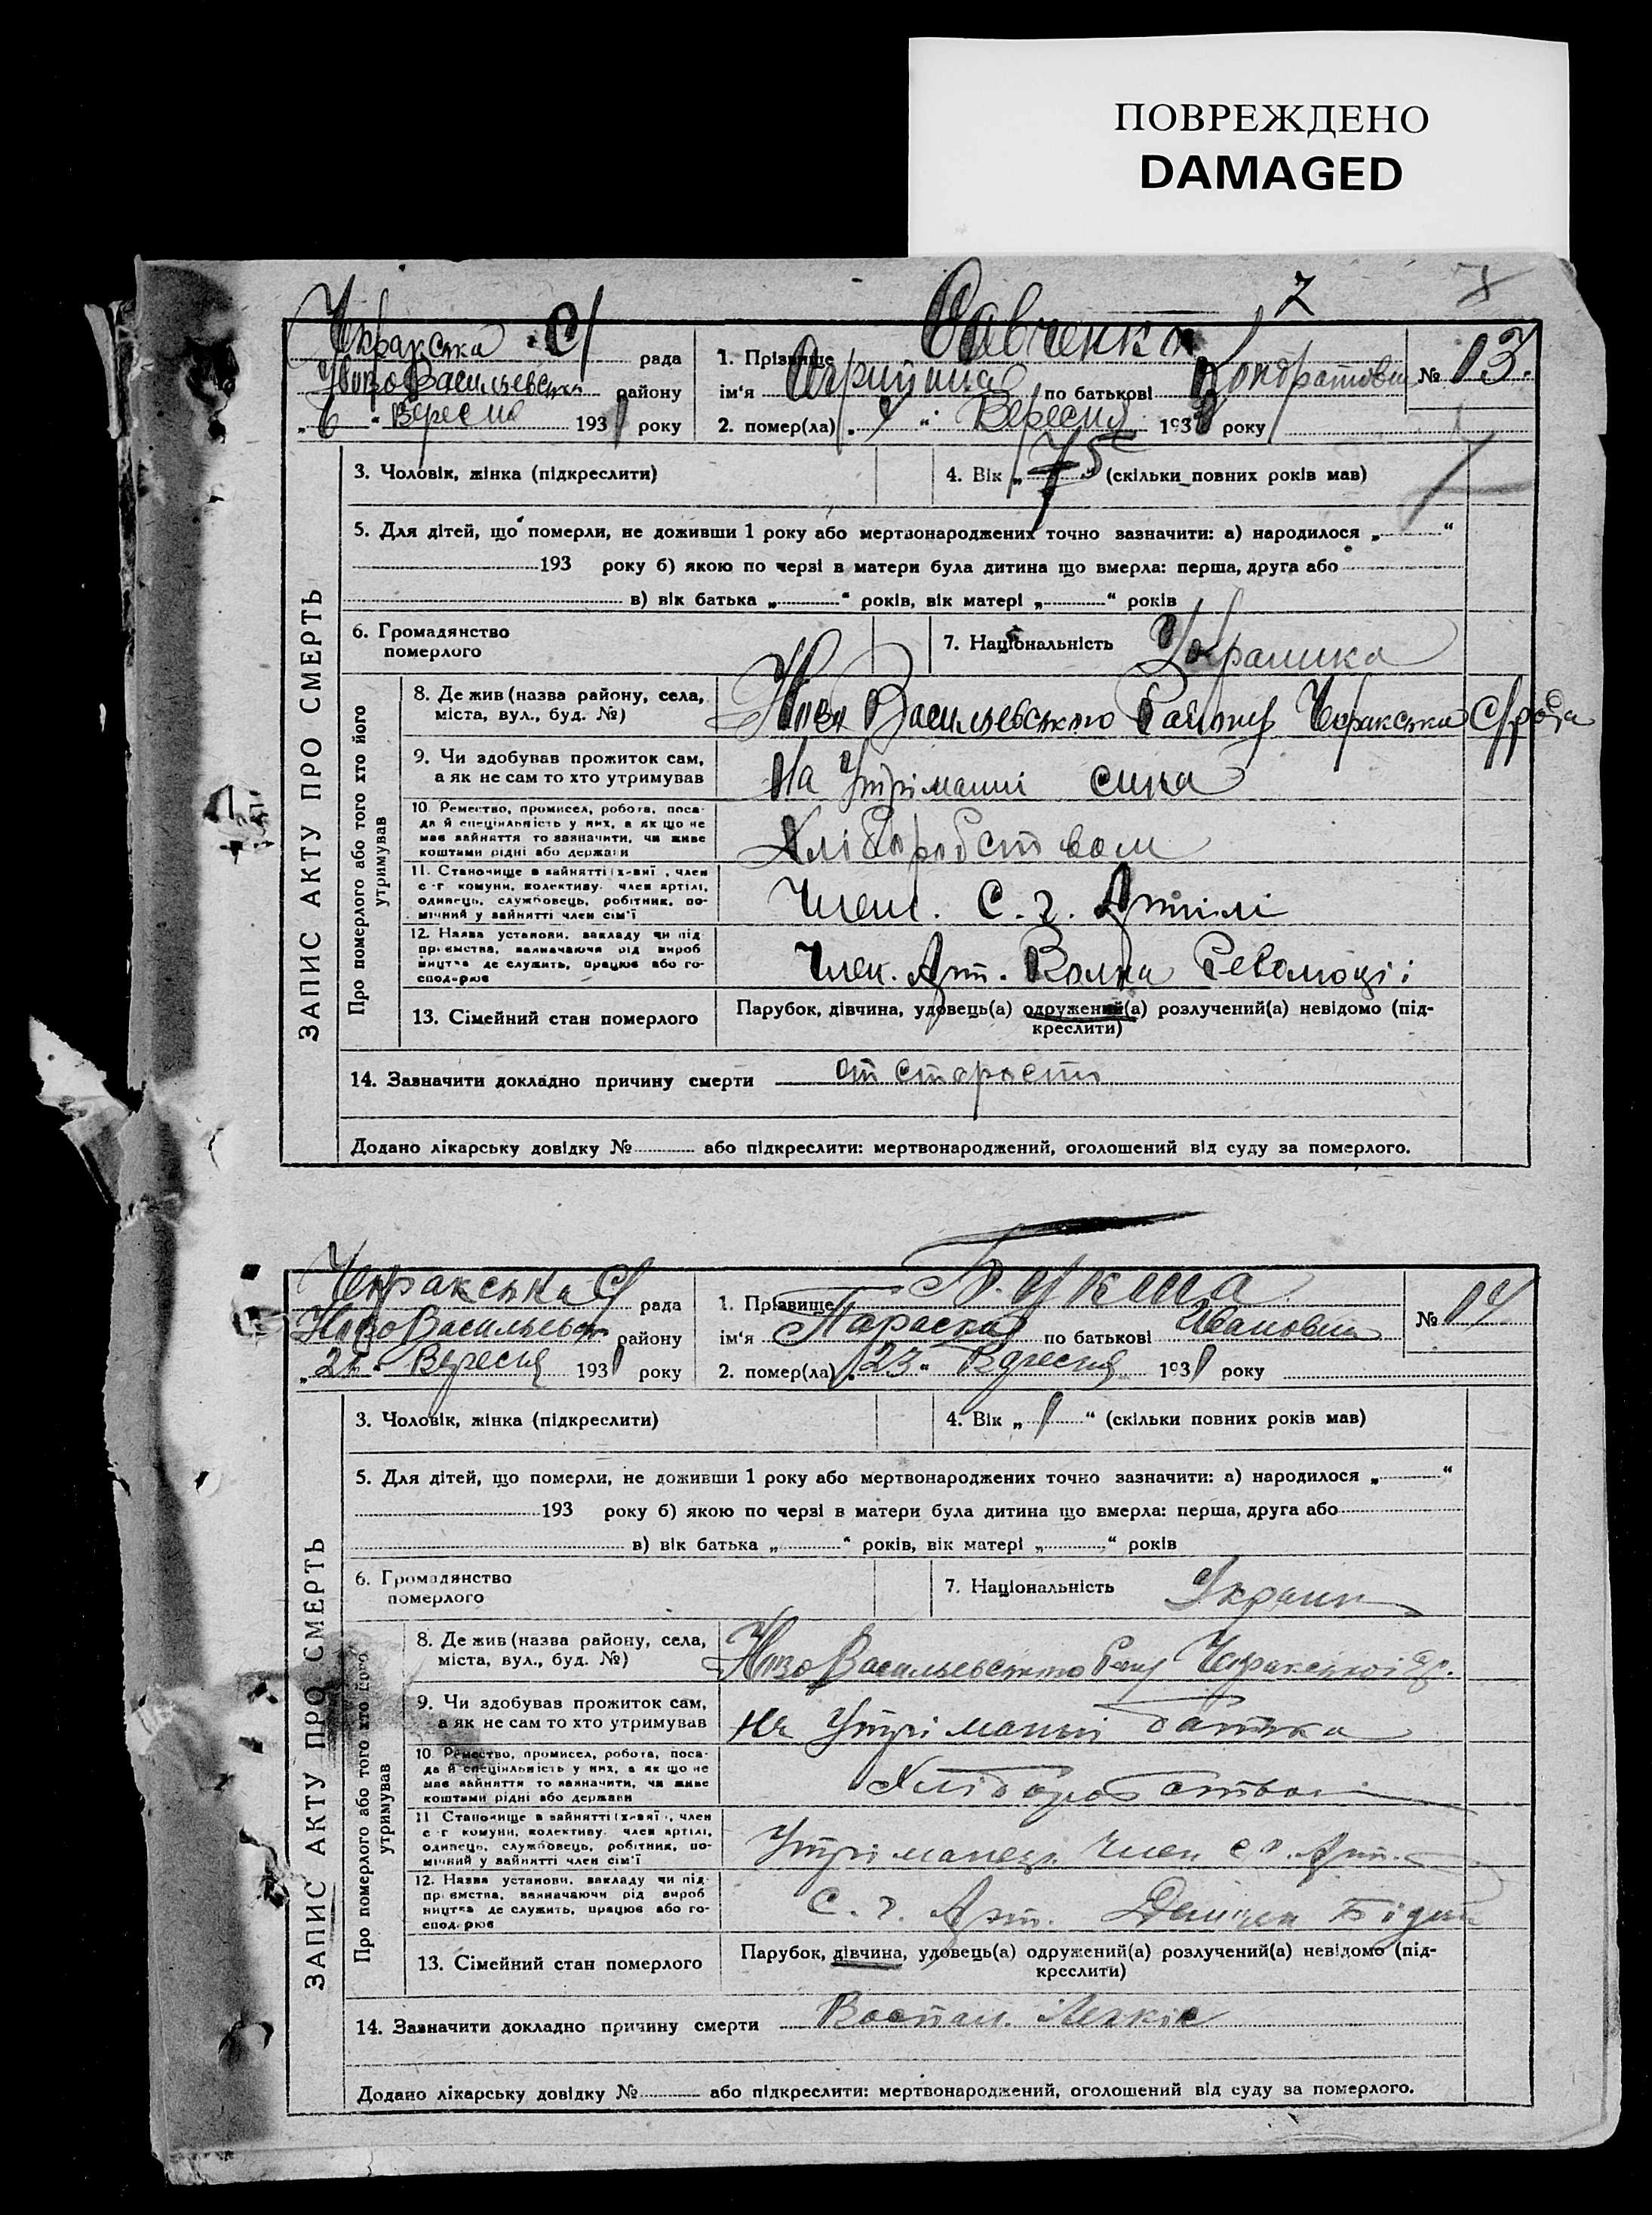 ПОВРЕЖДЕНО
DAMAGED
7
Савченко
рада
НовоВасильевська району
„6“ Вересня 1931 року
1. Прізвище
ім'я по батькові Кондратовна
2. помер(ла) „ “ Вересня 193 року
№ 13.
ЗАПИС АКТУ ПРО СМЕРТЬ
3. Чоловік, жінка (підкреслити)
4. Вік „75“ (скільки повних років мав)
5. Для дітей, що померли, не доживши 1 року або мертвонароджених точно зазначити: а) народилося „ “
193 року б) якою по черзі в матери була дитина що вмерла: перша, друга або
в) вік батька „ “ років, вік матері „ “ років
6. Громадянство
померлого
7. Національність Украинка
Про померлого або того хто його
утримував
8. Де жив (назва району, села,
міста, вул., буд. №)
Ново Васильевського Району С/рада
9. Чи здобував прожиток сам,
а як не сам то хто утримував
На Утріманні сина
10. Ремество, промисел, робота, поса-
да й спеціяльність у них, а як що не
має зайняття то зазначити, чи живе
коштами рідні або держави
Хліборобством
11. Становище в зайнятті (х-вні, член
с-г комуни, колективу, член артілі,
одинець, службовець, робітник, по-
мічний у зайнятті член сім'ї
Член. С. г. Артілі
12. Назва установи, закладу чи під-
приємства, зазначаючи рід вироб-
ництва де служить, працює або го-
сподарює
Член. Арт. Волна Революціі
13. Сімейний стан померлого
Парубок, дівчина, удовець(а) одружений(а) розлучений(а) невідомо (під-
креслити)
14. Зазначити докладно причину смерти от старости
Додано лікарську довідку № або підкреслити: мертвонароджений, оголошений від суду за померлого.
рада
НовоВасильевськ району
Вересня 1931 року
1. Прізвище
ім'я Параска по батькові Ивановна
2. помер(ла) „23“ Вересня 1931 року
№ 14
ЗАПИС АКТУ ПРО СМЕРТЬ
3. Чоловік, жінка (підкреслити)
4. Вік „1“ (скільки повних років мав)
5. Для дітей, що померли, не доживши 1 року або мертвонароджених точно зазначити: а) народилося „ “
193 року б) якою по черзі в матери була дитина що вмерла: перша, друга або
в) вік батька „ “ років, вік матері „ “ років
6. Громадянство
померлого
7. Національність Украин
Про померлого або того хто його
утримував
8. Де жив (назва району, села,
міста, вул., буд. №)
НовоВасильевського
9. Чи здобував прожиток сам,
а як не сам то хто утримував
На Утріманні батька
10. Ремество, промисел, робота, поса-
да й спеціяльність у них, а як що не
має зайняття то зазначити, чи живе
коштами рідні або держави
Хліборобством
11 Становище в зайнятті (х-вні, член
с-г комуни, колективу, член артілі,
одинець, службовець, робітник, по-
мічний у зайнятті член сім'ї
Утріманец. Член с г. Арт.
12. Назва установи, закладу чи під-
приємства, зазначаючи рід вироб-
ництва де служить, працює або го-
сподарює
С. г. Арт. Демьян Бідний
13. Сімейний стан померлого
Парубок, дівчина, удовець(а) одружений(а) розлучений(а) невідомо (під-
креслити)
14. Зазначити докладно причину смерти Воспал. Легкіх
Додано лікарську довідку № або підкреслити: мертвонароджений, оголошений від суду за померлого.